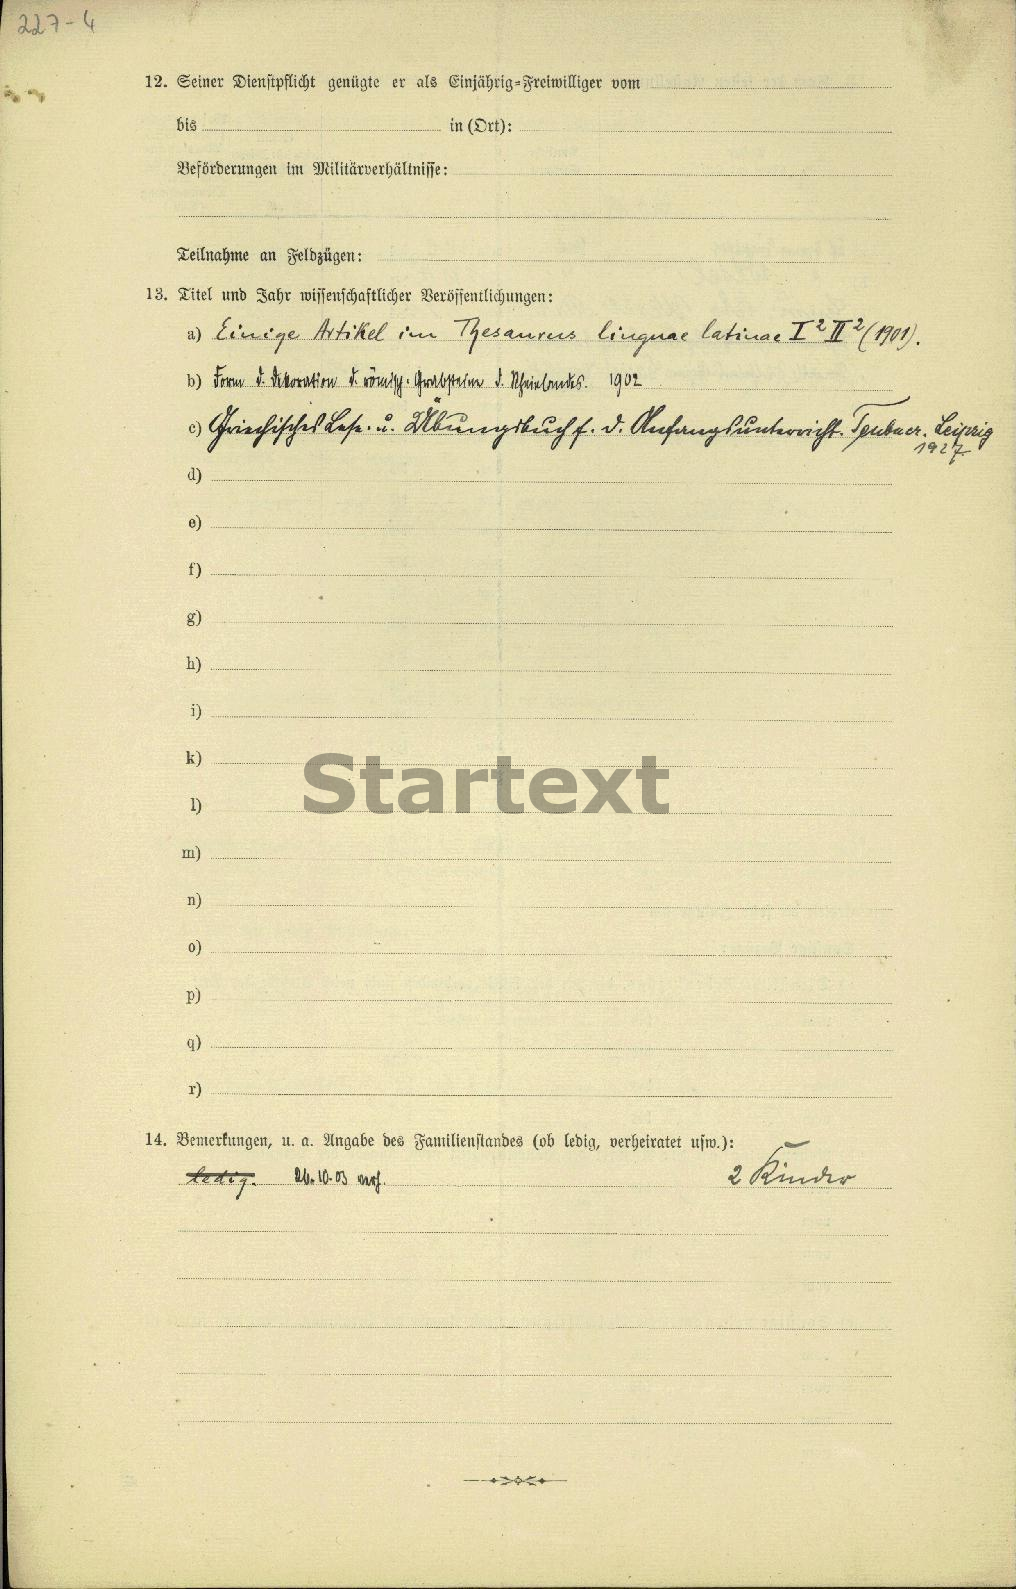 227-4
12. Seiner Dienstpflicht genügte er als Einjährig-Freiwilliger vom
bis in (Ort):
Beförderungen im Militärverhältnisse:
Teilnahme an Feldzügen:
13. Titel und Jahr wissenschaftlicher Veröffentlichungen:
a) Einige Artikel im Thesaurus linguae latinae I² II² (1901).
b) Form d. Dekoration d. römisch. Grabsteine d. Rheinlandes. 1902
c) Griechisches Lese- u. Übungsbuch f. d. Anfangsunterricht. Teubner. Leipzig
1927
d)
e)
f)
g)
h)
i)
k)
Startext
l)
m)
n)
o)
p)
q)
r)
14. Bemerkungen, u. a. Angabe des Familienstandes (ob ledig, verheiratet usw.):
ledig. 26.10.03 verh. 2 Kinder